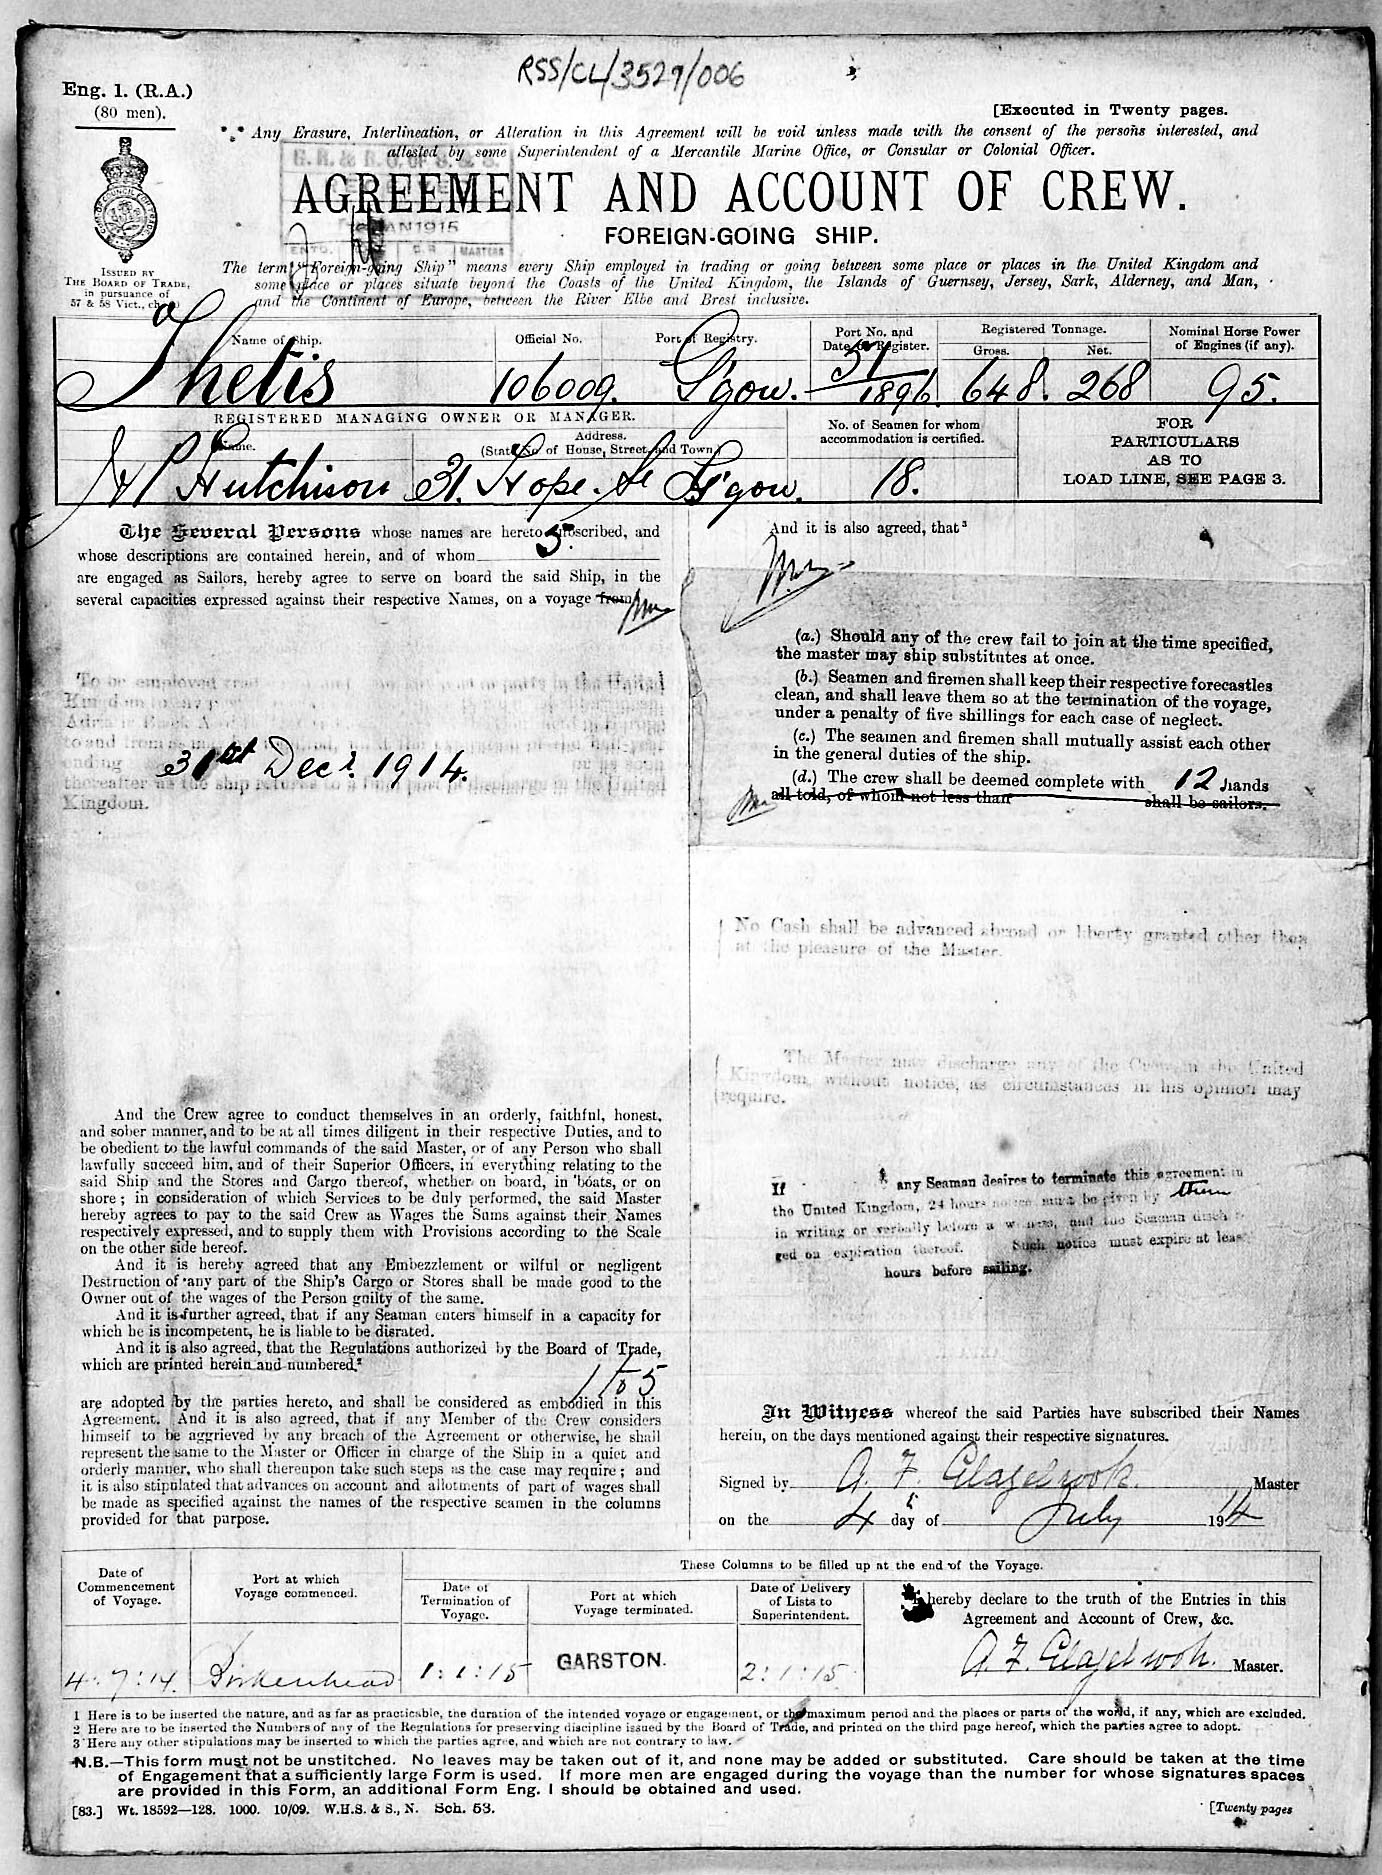 RSS/CL/3529/006
Eng. 1. (R.A.)
(80 men).
[Executed in Twenty pages.
*.* Any Erasure, Interlineation, or Alteration in this Agreement will be void unless made with the consent of the persons interested, and
attested by some Superintendent of a Mercantile Marine Office, or Consular or Colonial Officer.
AGREEMENT AND ACCOUNT OF CREW.
FOREIGN-GOING SHIP.
ISSUED BY
THE BOARD OF TRADE,
in pursuance of
57 & 58 Vict., ch.
The term "Foreign-going Ship" means every Ship employed in trading or going between some place or places in the United Kingdom and
some place or places situate beyond the Coasts of the United Kingdom, the Islands of Guernsey, Jersey, Sark, Alderney, and Man,
and the Continent of Europe, between the River Elbe and Brest inclusive.
Name of Ship. Official No. Port of Registry. Port No. and Date of Register. Registered Tonnage. Gross. Net. Nominal Horse Power of Engines (if any).
Thetis 106009. G'gow. 51/1896. 648. 268 95.
REGISTERED MANAGING OWNER OR MANAGER.
Name. Address. (State No. of House, Street, and Town) No. of Seamen for whom accommodation is certified.
FOR PARTICULARS AS TO LOAD LINE, SEE PAGE 3.
J P Hutchison 31. Hope. St G'gow. 18.
The Several Persons whose names are hereto subscribed, and
whose descriptions are contained herein, and of whom 5.
are engaged as Sailors, hereby agree to serve on board the said Ship, in the
several capacities expressed against their respective Names, on a voyage from
To be employed
31st Decr. 1914.
thereafter as the ship returns to a port of discharge in the United
Kingdom.
And the Crew agree to conduct themselves in an orderly, faithful, honest,
and sober manner, and to be at all times diligent in their respective Duties, and to
be obedient to the lawful commands of the said Master, or of any Person who shall
lawfully succeed him, and of their Superior Officers, in everything relating to the
said Ship and the Stores and Cargo thereof, whether on board, in boats, or on
shore; in consideration of which Services to be duly performed, the said Master
hereby agrees to pay to the said Crew as Wages the Sums against their Names
respectively expressed, and to supply them with Provisions according to the Scale
on the other side hereof.
And it is hereby agreed that any Embezzlement or wilful or negligent
Destruction of any part of the Ship's Cargo or Stores shall be made good to the
Owner out of the wages of the Person guilty of the same.
And it is further agreed, that if any Seaman enters himself in a capacity for
which he is incompetent, he is liable to be disrated.
And it is also agreed, that the Regulations authorized by the Board of Trade,
which are printed herein and numbered,²
1 to 5
are adopted by the parties hereto, and shall be considered as embodied in this
Agreement. And it is also agreed, that if any Member of the Crew considers
himself to be aggrieved by any breach of the Agreement or otherwise, he shall
represent the same to the Master or Officer in charge of the Ship in a quiet and
orderly manner, who shall thereupon take such steps as the case may require; and
it is also stipulated that advances on account and allotments of part of wages shall
be made as specified against the names of the respective seamen in the columns
provided for that purpose.
And it is also agreed, that³
(a.) Should any of the crew fail to join at the time specified,
the master may ship substitutes at once.
(b.) Seamen and firemen shall keep their respective forecastles
clean, and shall leave them so at the termination of the voyage,
under a penalty of five shillings for each case of neglect.
(c.) The seamen and firemen shall mutually assist each other
in the general duties of the ship.
(d.) The crew shall be deemed complete with 12 hands
all told, of whom not less than shall be sailors.
No Cash shall be advanced abroad or liberty granted other than
at the pleasure of the Master.
The Master may discharge any of the Crew in the United
Kingdom, without notice, as circumstances in his opinion may
require.
If any Seaman desires to terminate this agreement in
the United Kingdom, 24 hours notice must be given by them
in writing or verbally before a witness, and the Seaman
ged on expiration thereof. Such notice must expire at least
hours before sailing.
In Witness whereof the said Parties have subscribed their Names
herein, on the days mentioned against their respective signatures.
Signed by A. F. Glazebrook. Master
on the 4th day of July 1914
These Columns to be filled up at the end of the Voyage.
Date of Commencement of Voyage. Port at which Voyage commenced. Date of Termination of Voyage. Port at which Voyage terminated. Date of Delivery of Lists to Superintendent.
I hereby declare to the truth of the Entries in this
Agreement and Account of Crew, &c.
4:7:14. Birkenhead 1:1:15 GARSTON. 2:1:15.
A. F. Glazebrook. Master.
1 Here is to be inserted the nature, and as far as practicable, the duration of the intended voyage or engagement, or the maximum period and the places or parts of the world, if any, which are excluded.
2 Here are to be inserted the Numbers of any of the Regulations for preserving discipline issued by the Board of Trade, and printed on the third page hereof, which the parties agree to adopt.
3 Here any other stipulations may be inserted to which the parties agree, and which are not contrary to law.
N.B.—This form must not be unstitched. No leaves may be taken out of it, and none may be added or substituted. Care should be taken at the time
of Engagement that a sufficiently large Form is used. If more men are engaged during the voyage than the number for whose signatures spaces
are provided in this Form, an additional Form Eng. 1 should be obtained and used.
[83.] Wt. 18592—128. 1000. 10/09. W.H.S. & S., N. Sch. 53.
[Twenty pages